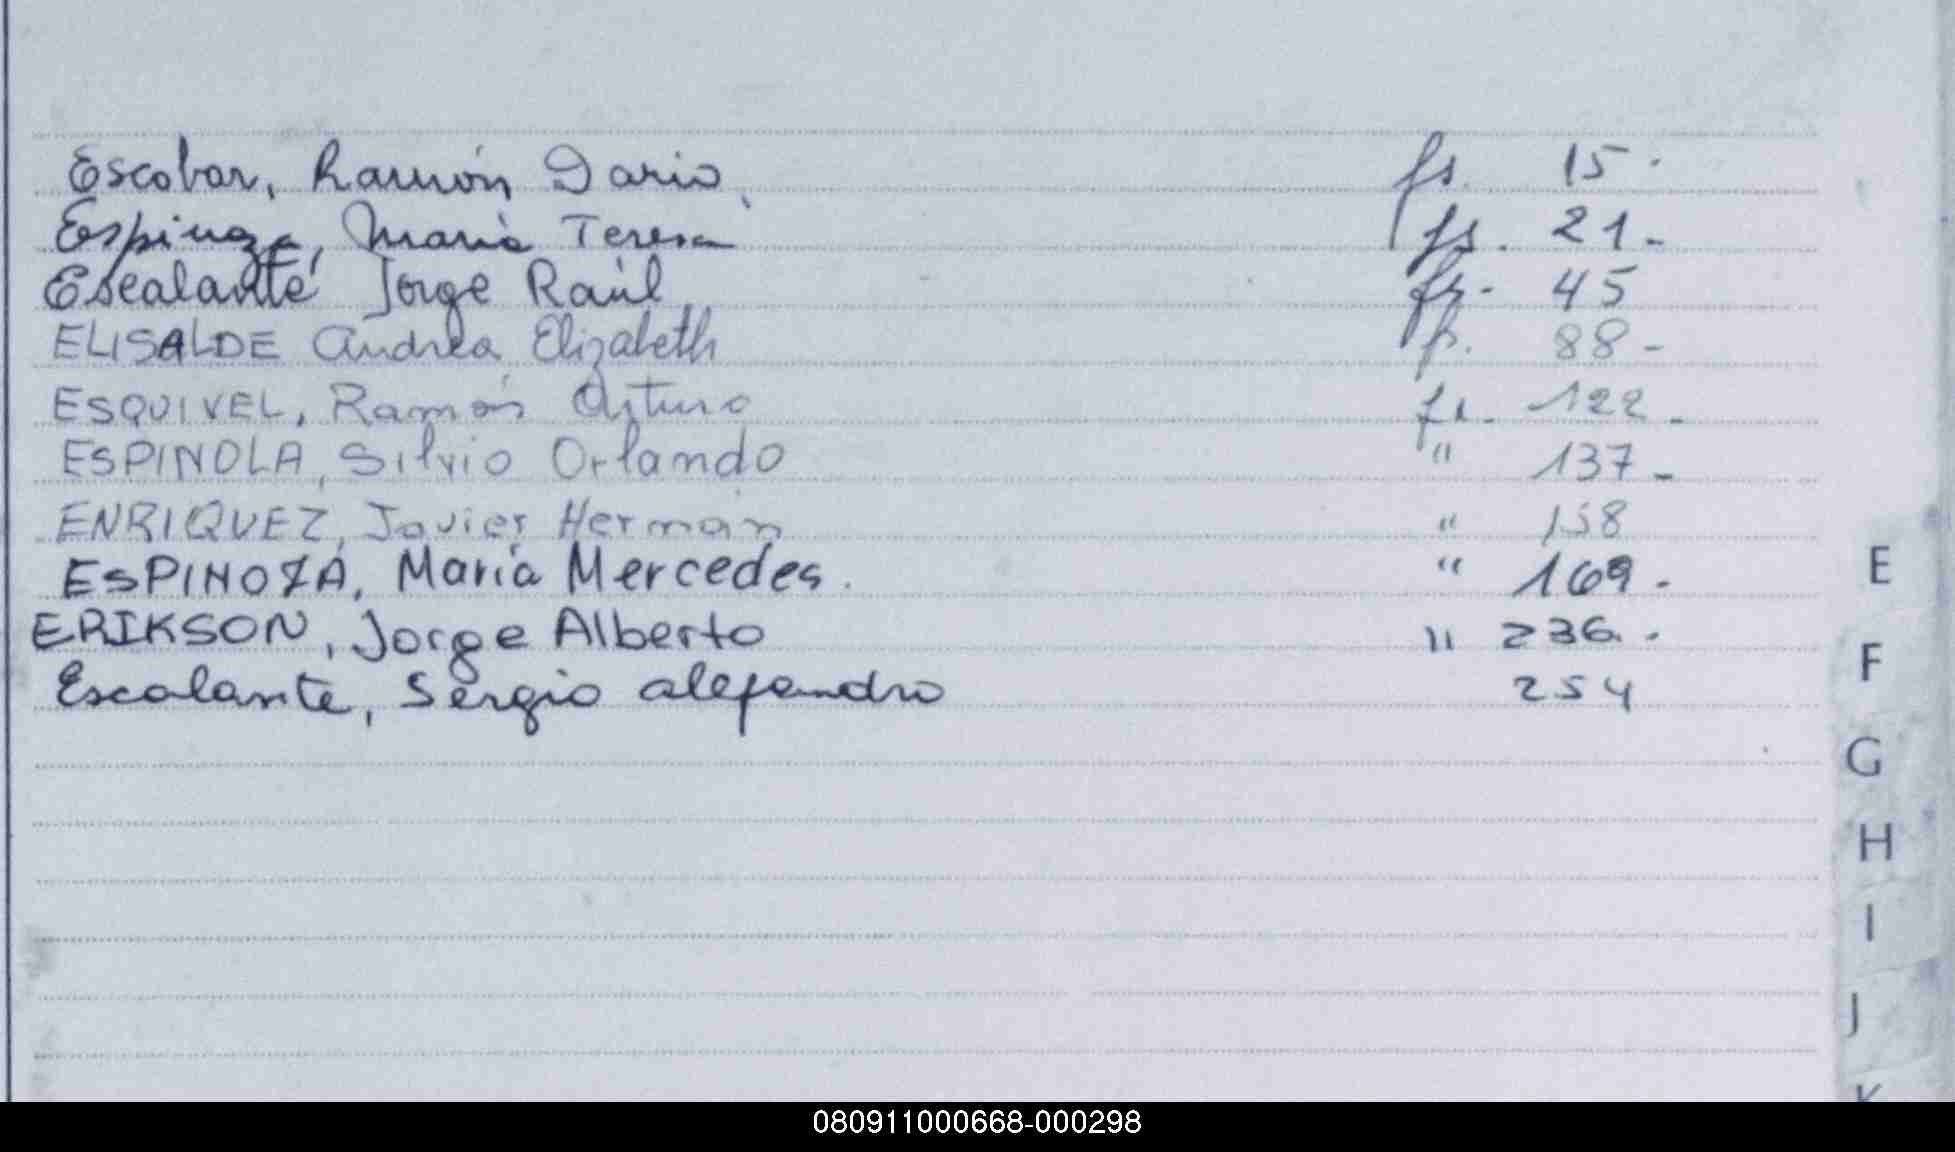 Escobar, Ramón Dario, fs. 15.
Espinoza, Maria Teresa fs. 21-
Escalante Jorge Raúl fs. 45
ELISALDE Andrea Elizabeth fs. 88-
ESQUIVEL, Ramón Arturo fs. 122-
ESPINOLA, Silvio Orlando " 137-
ENRIQUEZ, Javier Hernan " 158
ESPINOZA, María Mercedes. " 169-
ERIKSON, Jorge Alberto " 236.-
Escalante, Sergio alejandro 254
E
F
G
H
I
J
K
080911000668-000298